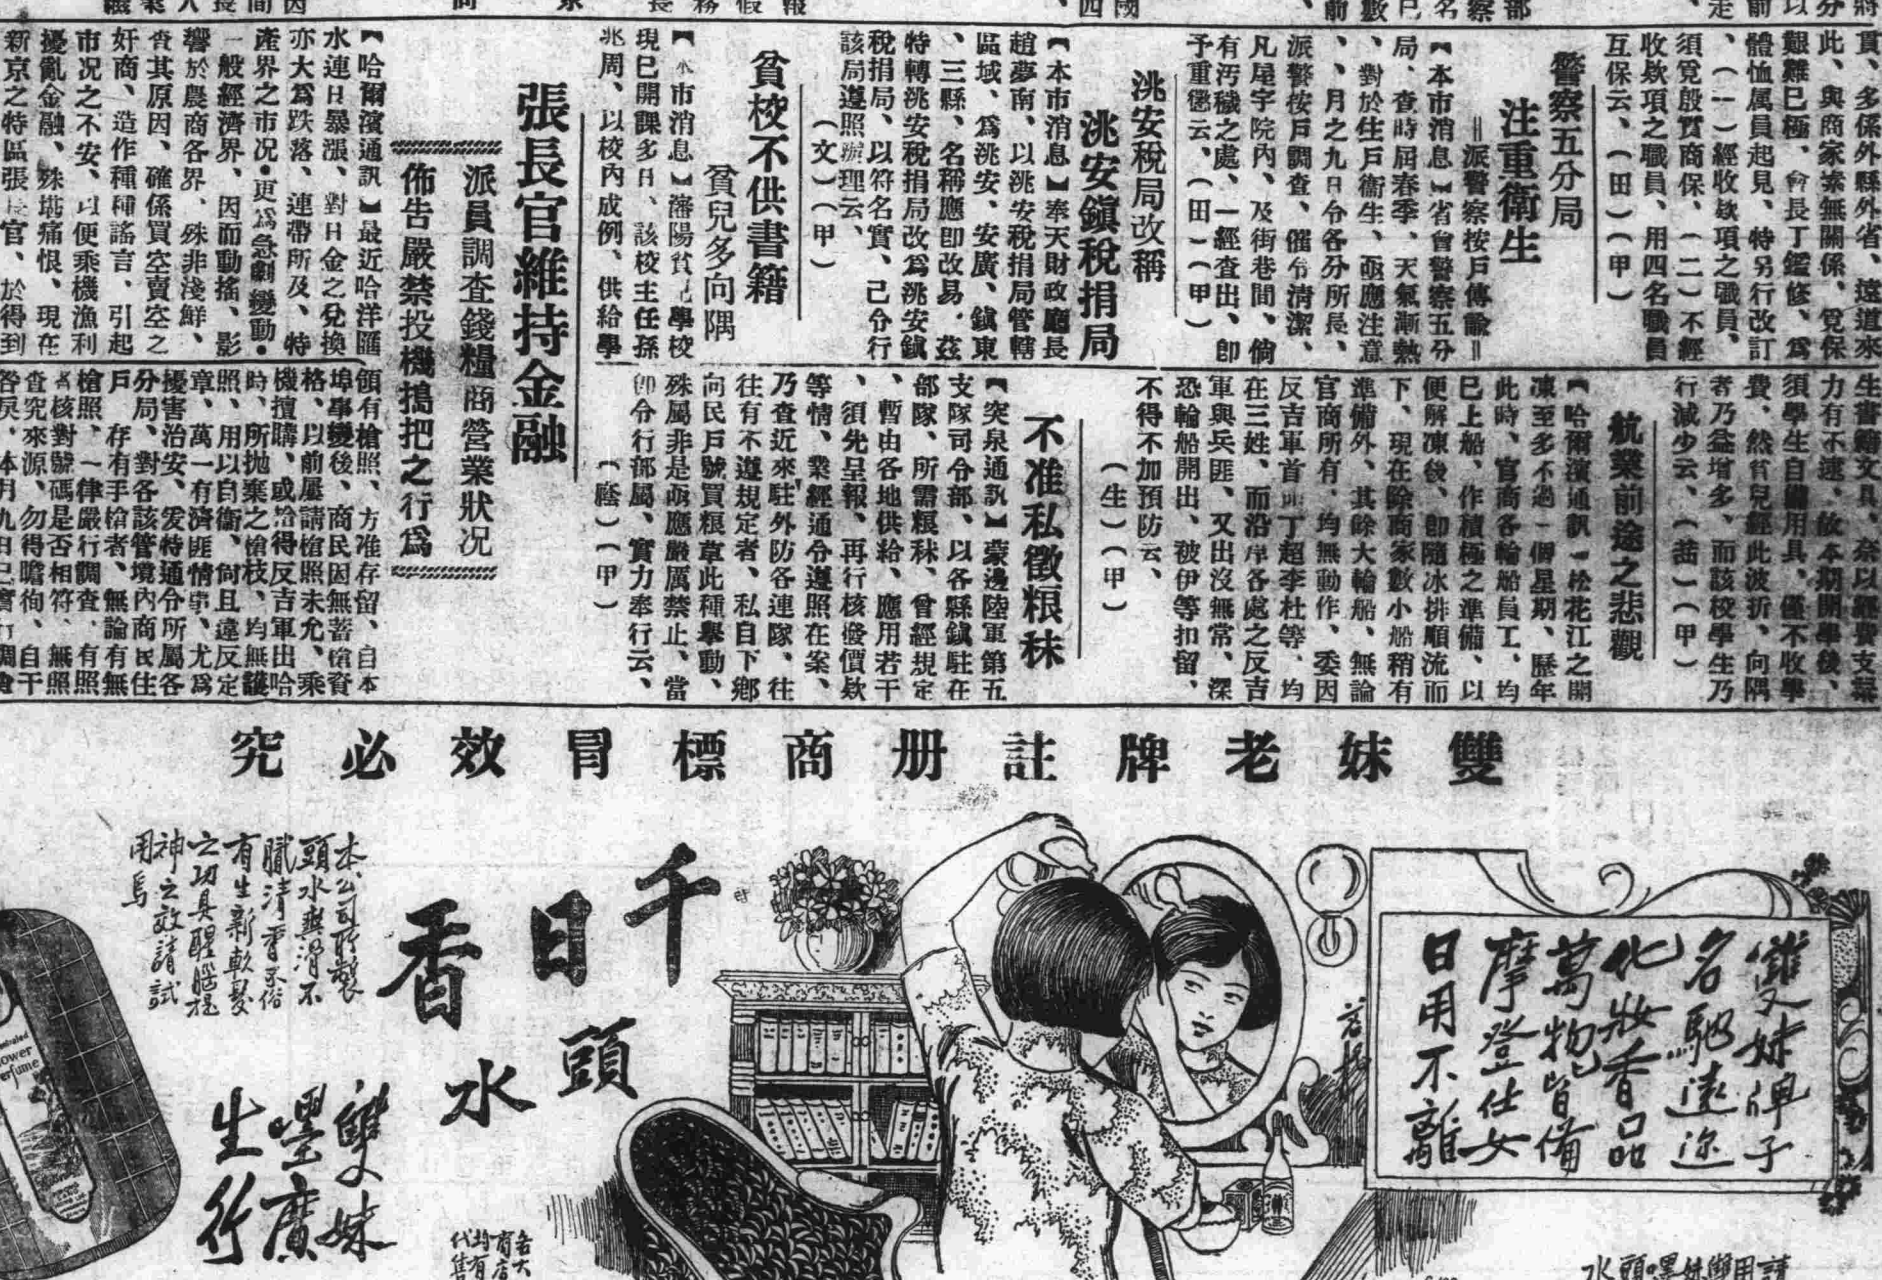 貫、多係外縣外省、遠道來
此、與商家素無關係、覓保
艱難已極、會長丁鑑修、爲
體恤属員起見、特另行改訂
、(一)經收欵項之職員、
須覓殷實商保、(二)不經
收欵項之職員、用四名職員
互保云、(田)(甲)
警察五分局
注重衛生
=派警察按戶傳諭=
【本市消息】省會警察五分
局、查時屆春季、天氣漸熱
、對於住戶衞生、亟應注意
、月之九日令各分所長、
派警按戶調查、催令清潔、
凡屋宇院內、及街巷間、倘
有汚穢之處、一經查出、卽
予重懲云、(田)(甲)
洮安稅局改稱
洮安鎭稅捐局
【本市消息】奉天財政廳長
趙夢南、以洮安稅捐局管轄
區域、爲洮安、安廣、鎭東
、三縣、名稱應卽改易、茲
特轉洮安稅捐局改爲洮安鎭
稅捐局、以符名實、己令行
該局遵照辦理云、
(文)(甲)
貧校不供書籍
貧兒多向隅
【本市消息】瀋陽貧兒學校
現已開課多日、該校主任孫
兆周、以校內成例、供給學
生書籍文具、奈以經費支絀
力有不逮、故本期開學後、
須學生自備用具、僅不收學
費、然貧兒經此波折、向隅
者乃益增多、而該校學生乃
行減少云、(喆)(甲)
航業前途之悲觀
【哈爾濱通訊】松花江之開
凍至多不過一個星期、歷年
此時、官商各輪船員工、均
巳上船、作積極之準備、以
便解凍後、卽隨冰排順流而
下、現在除商家數小船稍有
準備外、其餘大輪船、無論
官商所有、均無動作、委因
反吉軍首領丁超李杜等、均
在三姓、而沿岸各處之反吉
軍與兵匪、又出沒無常、深
恐輪船開出、被伊等扣留、
不得不加預防云、
(生)(甲)
不准私徵粮秣
【突泉通訊】蒙邊陸軍第五
支隊司令部、以各縣鎭駐在
部隊、所需粮秣、曾經規定
、暫由各地供給、應用若干
、須先呈報、再行核發價欵
等情、業經通令遵照在案、
乃查近來駐外防各連隊、往
往有不遵規定者、私自下鄉
向民戶號買粮草此種舉動、
殊屬非是亟應嚴厲禁止、當
卽令行部屬、實力奉行云、
(蔭)(甲)
張長官維持金融
派員調查錢糧商營業狀况
佈告嚴禁投機搗把之行爲
【哈爾濱通訊】最近哈洋匯
水連日暴漲、對日金之兌換
亦大爲跌落、連帶所及、特
產界之市况、更爲急劇變動、
一般經濟界、因而動搖、影
響於農商各界、殊非淺鮮、
查其原因、確係買空賣空之
奸商、造作種種謠言、引起
市况之不安、以便乘機漁利
擾亂金融、殊堪痛恨、現在
新京之特區張長官、於得到
領有槍照、方准存留、自本
埠事變後、商民因無著槍資
格、以前屢請槍照未允、乘
機擅購、或拾得反吉軍出哈
時、所拋棄之槍枝、均無護
照、用以自衛、尙且違反定
章、萬一有濟匪情事、尤爲
擾害治安、爰特通令所屬各
分局、對各該管境內商民住
戶、存有手槍者、無論有無
槍照、一律嚴行調查、有照
者核對號碼是否相符、無照
查究來源、勿得瞻徇、自干
咎戾、本月九日已實行調查
雙妹老牌註册商標冒效必究
雙妹牌子
名馳遠邇
化妝香品
萬物皆備
摩登仕女
日用不離
千日香
頭水
本公司所製
頭水與滑不
膩清香不俗
有生新軟髮
之功具醒腦提
神之效請試
用焉
雙妹
嚜廣
生行
各大
商店
均有
代售
請用雙妹嚜頭水